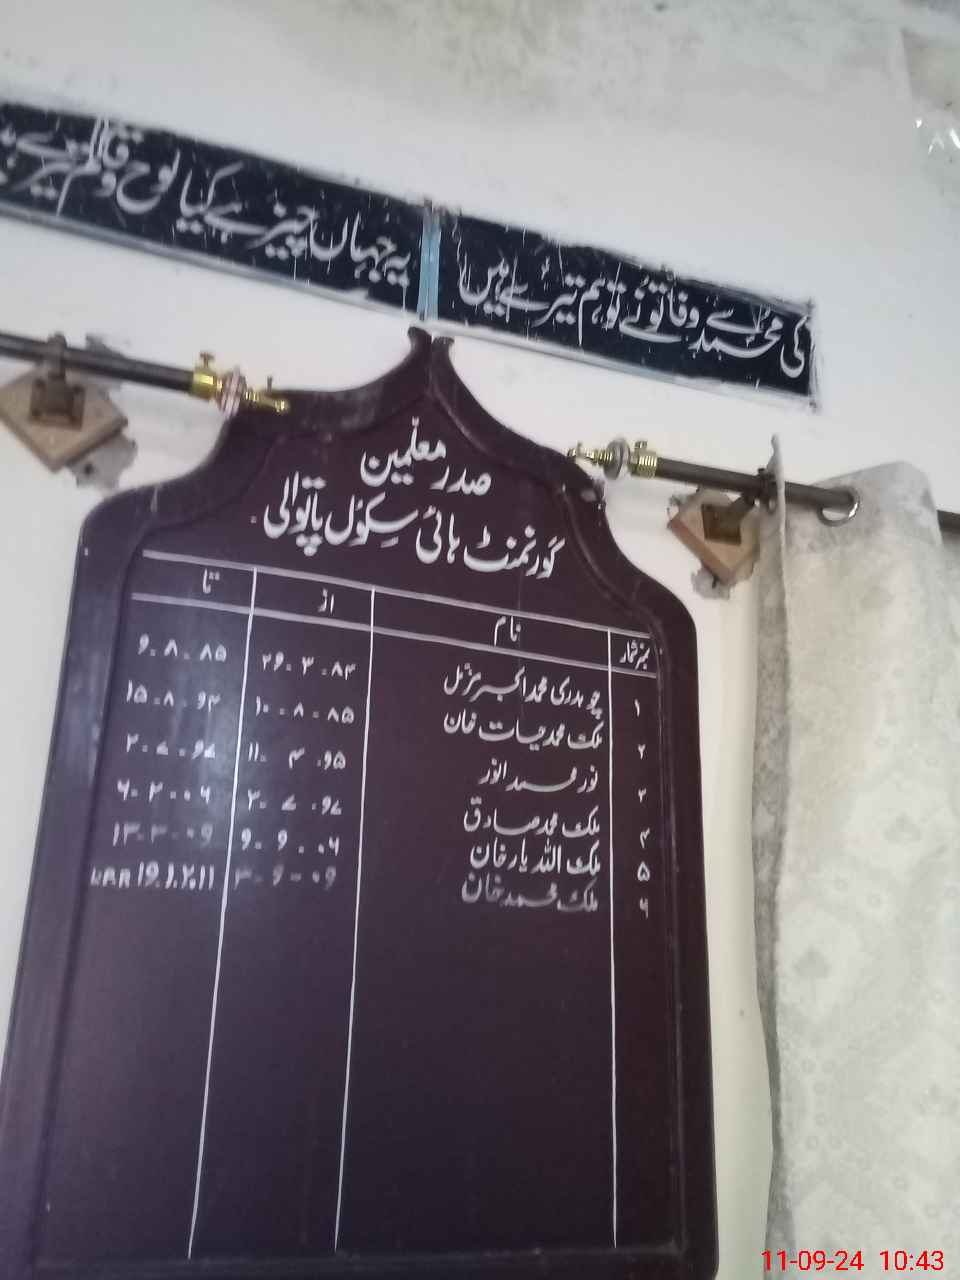 کی محمدؐ سے وفا تو نے تو ہم تیرے ہیں
یہ جہاں چیز ہے کیا لوح و قلم تیرے
صدر معلمین
گورنمنٹ ہائی سکول پاتوالی
نمبر شمار نام از تا
۱ چوہدری محمد اکبر مزمل ۲۶-۳-۸۴ ۹-۸-۸۵
۲ ملک محمد حیات خان ۱۰-۸-۸۵ ۱۵-۸-۹۴
۳ نور محمد انور ۱۱-۴-۹۵ ۲-۷-۹۷
۴ ملک محمد صادق ۳-۷-۹۷ ۶-۲-۰۶
۵ ملک اللہ یار خان ۹-۹-۰۶ ۱۳-۳-۰۹
۶ ملک محمد خان ۳-۶-۰۹ 19.1.2011
11-09-24 10:43